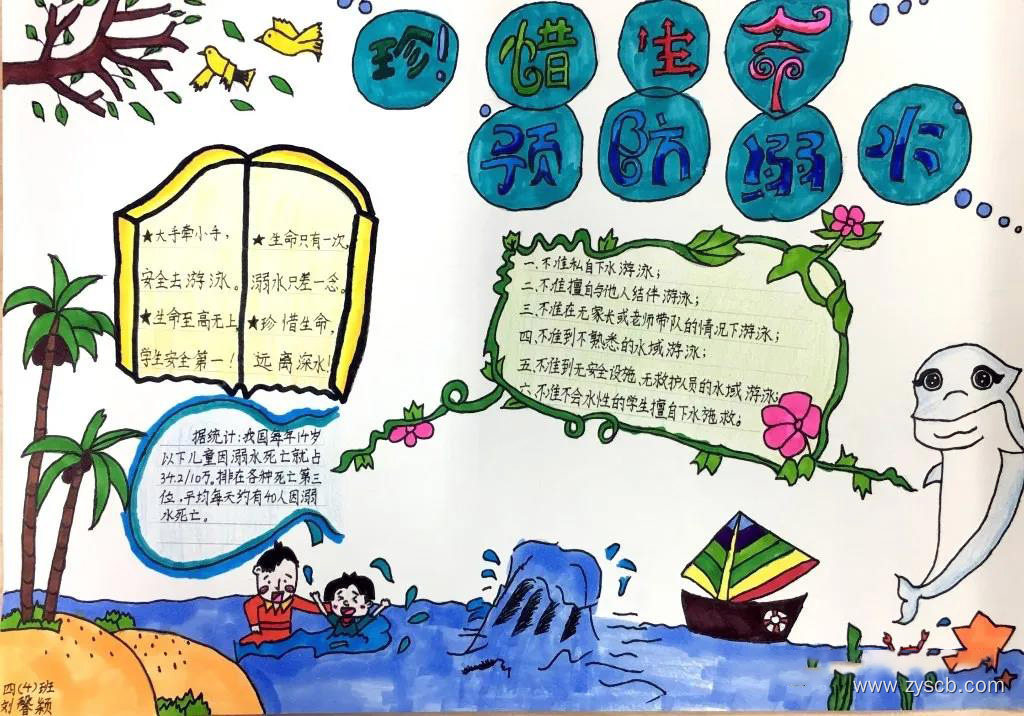 珍!惜生命
预防溺水
★大手牵小手,
安全去游泳。
★生命至高无上,
学生安全第一!
★生命只有一次,
溺水只差一念。
★珍惜生命,
远离深水!
一、不准私自下水游泳;
二、不准擅自与他人结伴游泳;
三、不准在无家长或老师带队的情况下游泳;
四、不准到不熟悉的水域游泳;
五、不准到无安全设施、无救护人员的水域游泳;
六、不准不会水性的学生擅自下水施救。
据统计:我国每年14岁
以下儿童因溺水死亡就占
34.2/10万。排在各种死亡第三
位,平均每天约有40人因溺
水死亡。
四(4)班
刘馨颖
www.zyscb.com